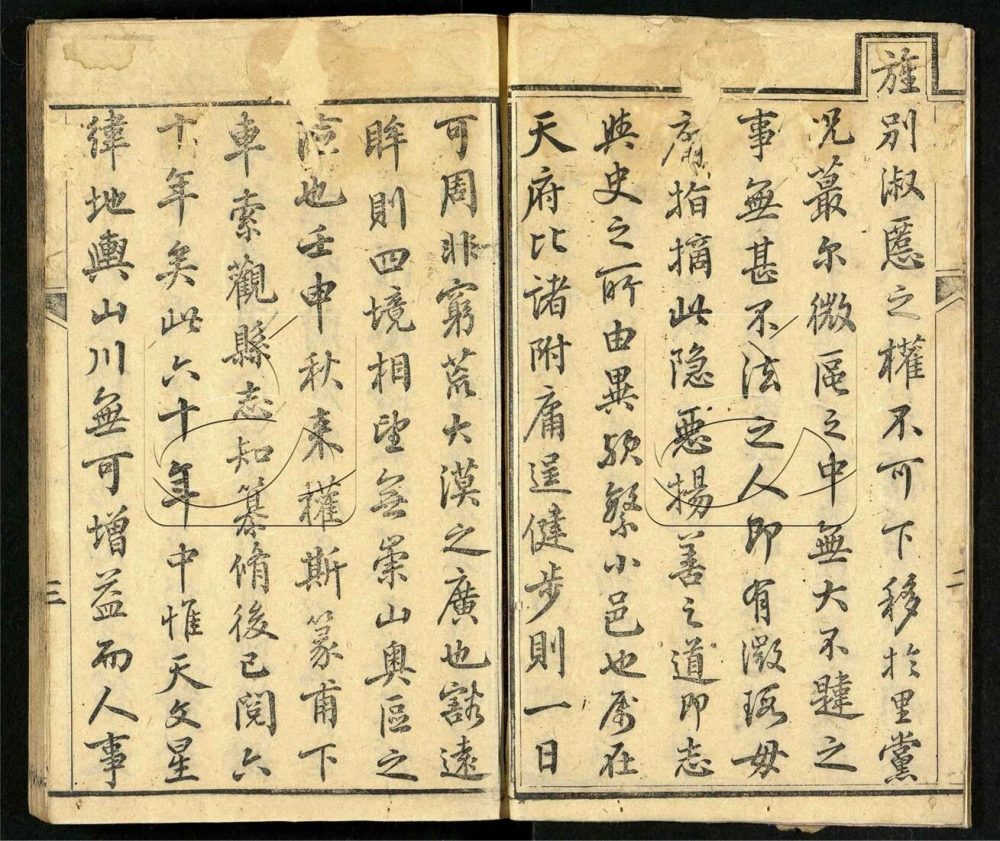 旌別淑慝之權不可下移於里黨
况蕞尔微區之中無大不韙之
事無甚不法之人即有微瑕毋
庸指摘此隐惡揚善之道即志
與史之所由異歟繁小邑也属在
天府比諸附庸逞健步則一日
二
可周非窮荒大漠之廣也豁遠
眸則四境相望無崇山奥區之
險也壬申秋来權斯篆甫下
車索觀縣志知纂脩後已閱六
十年矣此六十年中惟天文星
緯地輿山川無可增益而人事
三